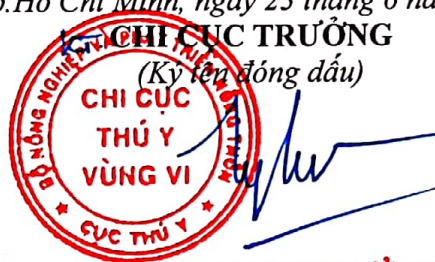 p.Hồ Chí Minh, ngày 25 tháng 6 nă
CHI CỤC TRƯỞNG
(Ký tên đóng dấu)
BỘ NÔNG NGHIỆP VÀ PHÁT TRIỂN NÔNG THÔN
CHI CỤC
THÚ Y
VÙNG VI
CỤC THÚ Y